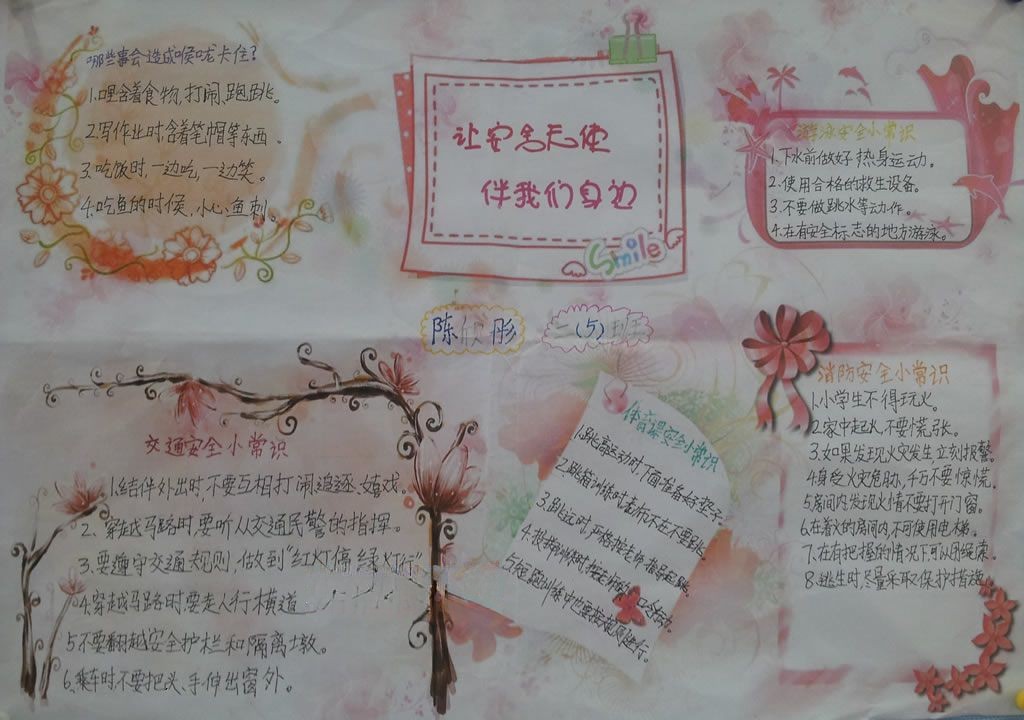 哪些事会造成喉咙卡住?
1.哩含着食物,打闹,跑跳。
2.写作业时含着笔帽等东西.
3.吃饭时,一边吃,一边笑。
4.吃鱼的时候,小心鱼刺。
让安全天使
伴我们身边
Smile
游泳安全小常识
1.下水前做好热身运动。
2.使用合格的救生设备。
3.不要做跳水等动作。
4.在有安全标志的地方游泳。
陈欣彤
二(5)班
交通安全小常识
1.结伴外出时,不要互相打闹,追逐、嬉戏。
2.穿越马路时,要听从交通民警的指挥。
3.要遵守交通规则,做到“红灯停绿灯行”
4.穿越马路时,要走人行横道
5.不要翻越安全护栏和隔离墩。
6.乘车时不要把头、手伸出窗外。
体育课安全小常识
1.跳高运动时,下面准备好垫子
2.跳箱训练时老师不在不要跳。
3.跳远时,严格按老师指导起跳。
4.投掷训练时,按老师的口令行动。
5.短跑训练中也要按规则进行。
消防安全小常识
1.小学生不得玩火。
2.家中起火,不要慌张。
3.如果发现火灾发生立刻报警
4.身受火灾危胁,千万不要惊慌。
5.房间内发现火情不要打开门窗。
6.在着火的房间内,不可使用电梯。
7.在有把握的情况下可以用绳索。
8.逃生时尽量采取保护措施